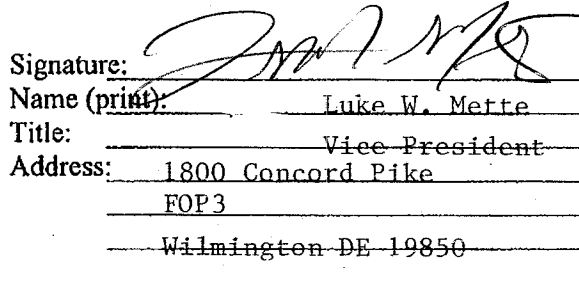 Signature:
Name (print): Luke W. Mette
Title: Vice President
Address: 1800 Concord Pike
FOP3
Wilmington DE 19850